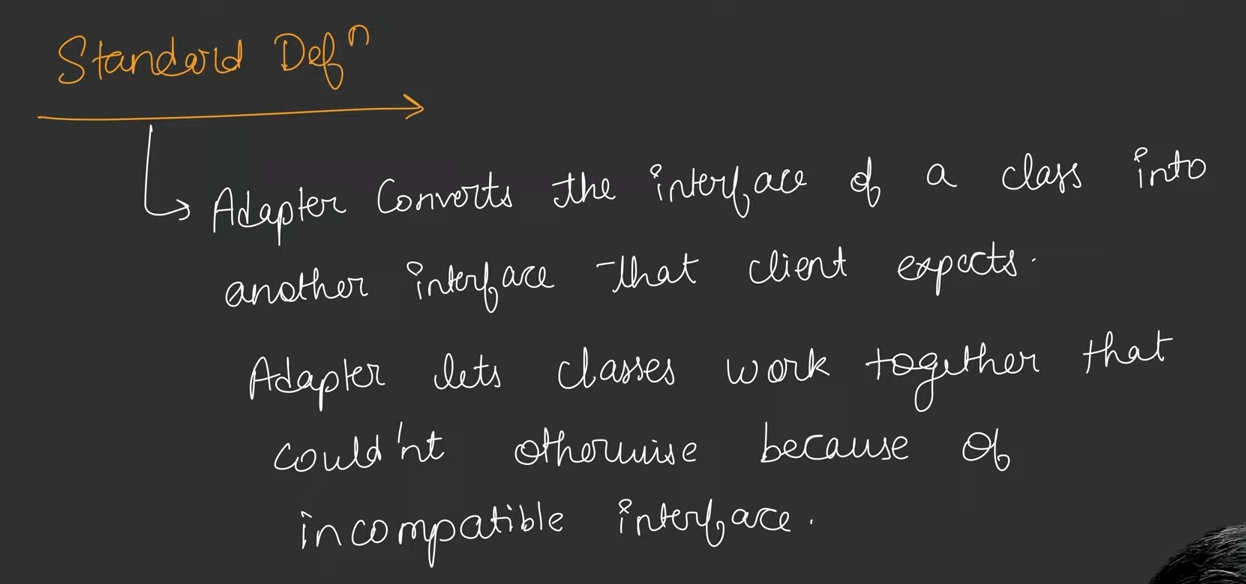 Standard Defⁿ
Adapter Converts the interface of a class into
another interface that client expects.
Adapter lets classes work together that
could'nt otherwise because of
incompatible interface.